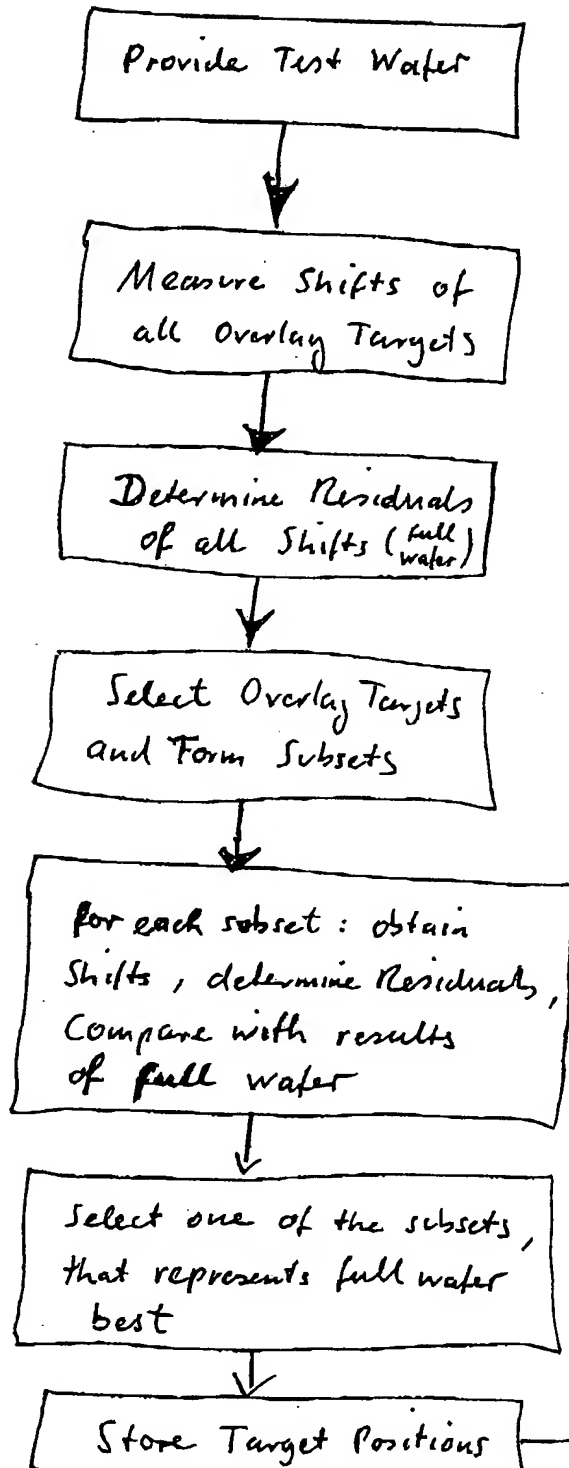 Provide Test Wafer
Measure Shifts of
all Overlay Targets
Determine Residuals
of all Shifts (full
wafer)
Select Overlay Targets
and Form Subsets
for each subset : obtain
Shifts , determine Residuals,
Compare with results
of full wafer
Select one of the subsets,
that represents full wafer
best
Store Target Positions